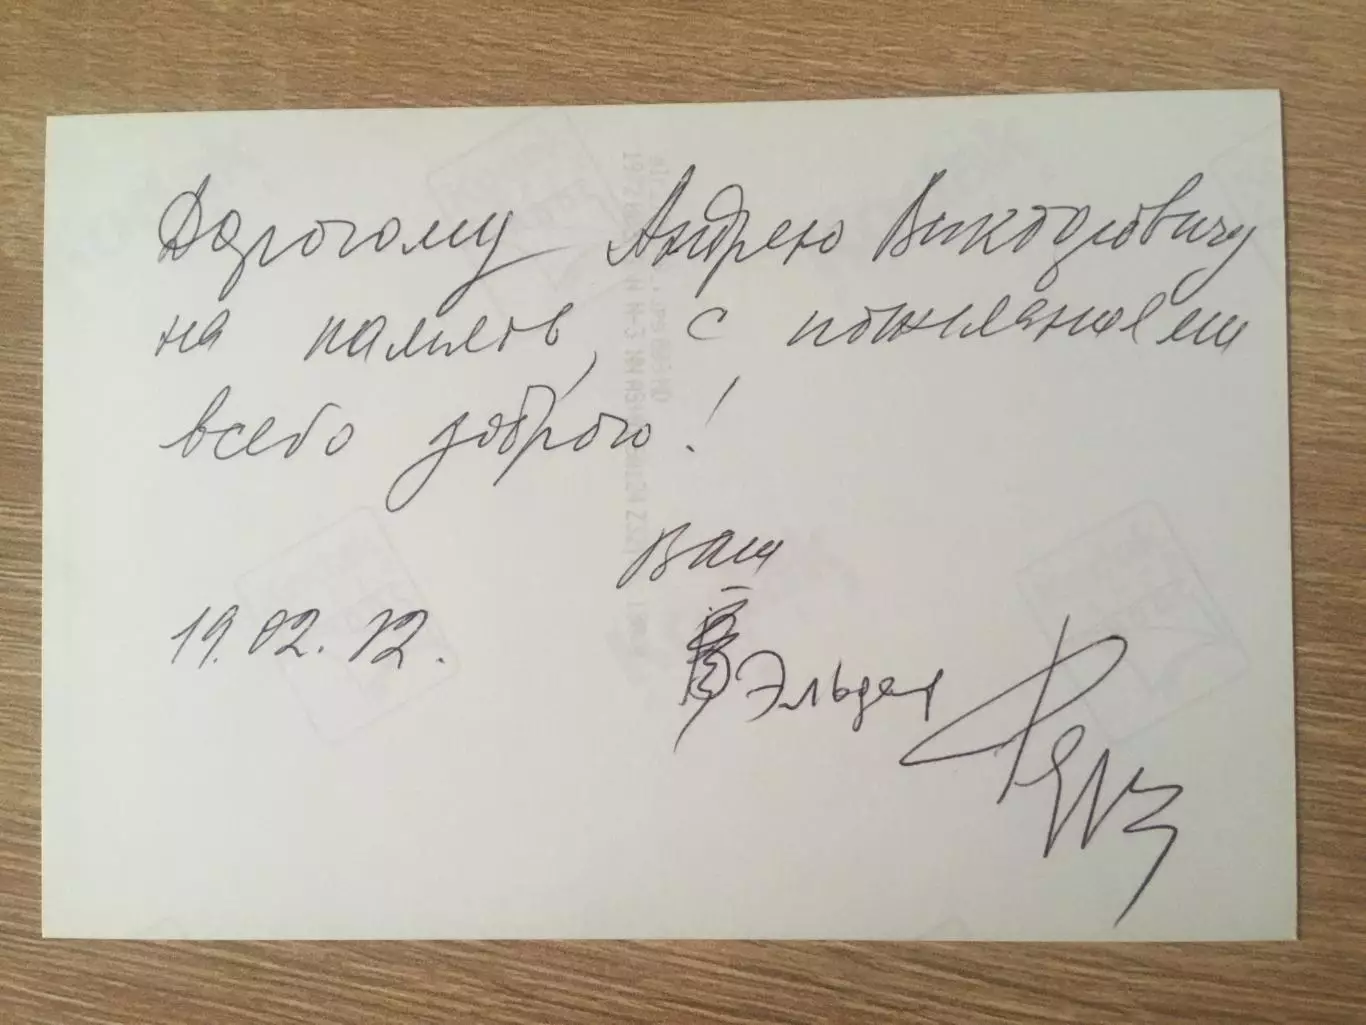 Дорогому Андрею Викторовичу
на память, с пожеланием
всего доброго!
Ваш
19.02.12.
Эльдар